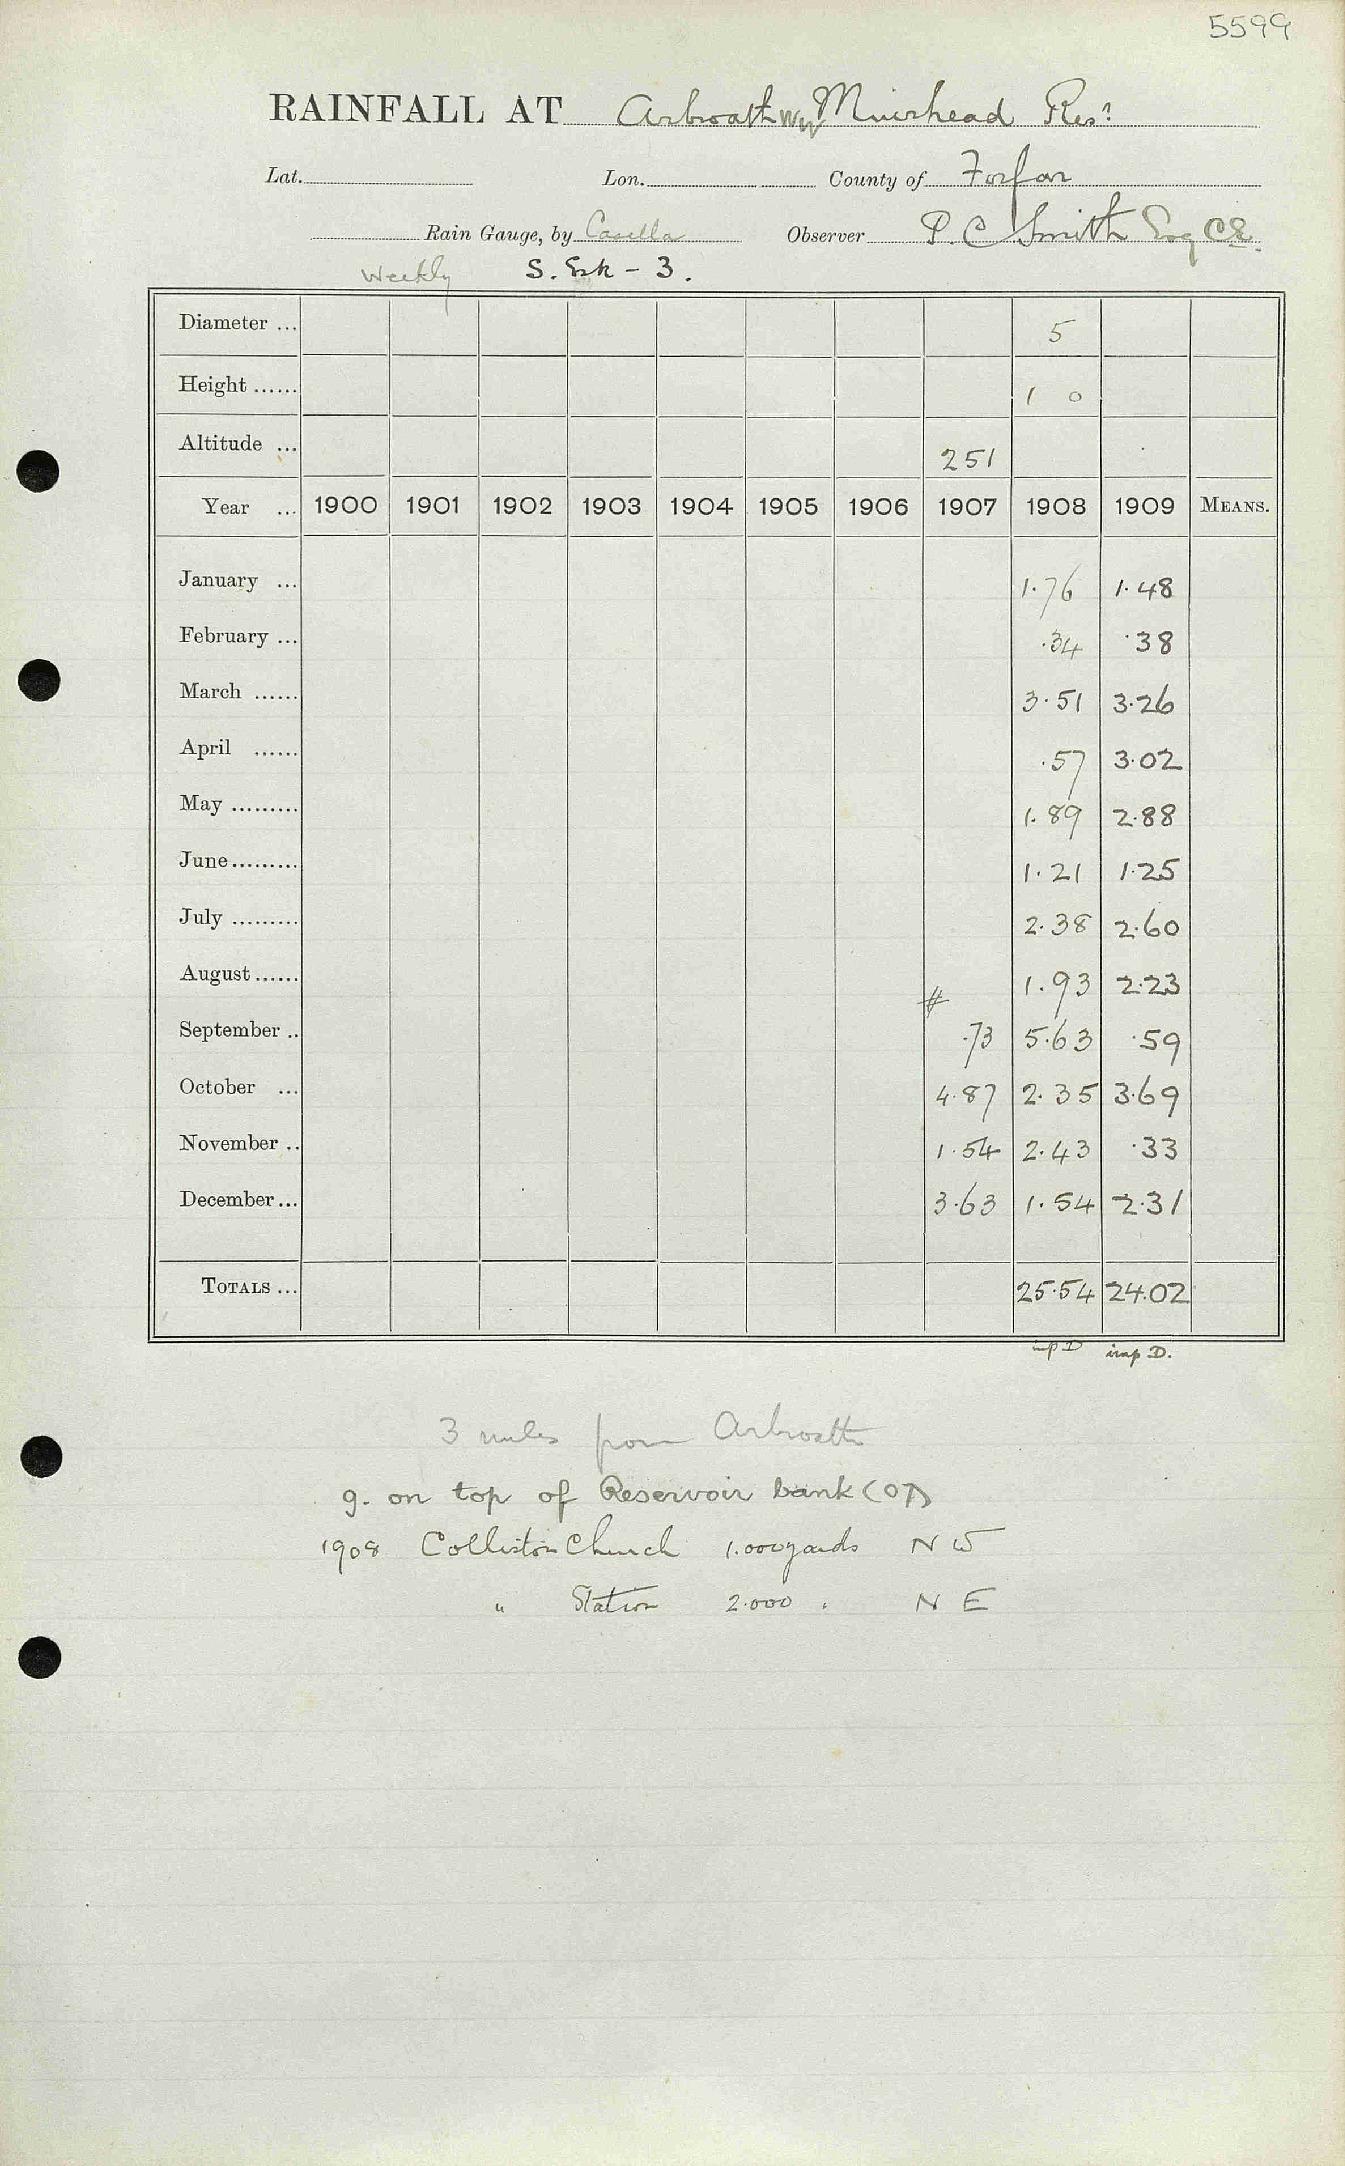 5599
RAINFALL AT Arbroath WW Muirhead Resr
Lat. Lon. County of Forfar
Rain Gauge, by Casella Observer P. C Smith Esq CE.
Weekly S. Esk - 3.
Diameter ... 5
Height ...... 1 0
Altitude ... 251
Year ... 1900 1901 1902 1903 1904 1905 1906 1907 1908 1909 MEANS.
January ... 1.76 1.48
February ... .34 .38
March ...... 3.51 3.26
April ...... .57 3.02
May ......... 1.89 2.88
June ......... 1.21 1.25
July ......... 2.38 2.60
August ...... 1.93 2.23
#
September .. .73 5.63 .59
October ... 4.87 2.35 3.69
November .. 1.54 2.43 .33
December ... 3.63 1.54 2.31
TOTALS ... 25.54 24.02
imp D imp D.
3 miles from Arbroath
g. on top of Reservoir bank (07)
1908 Colliston Church 1.000 yards N W
" Station 2.000 " N E